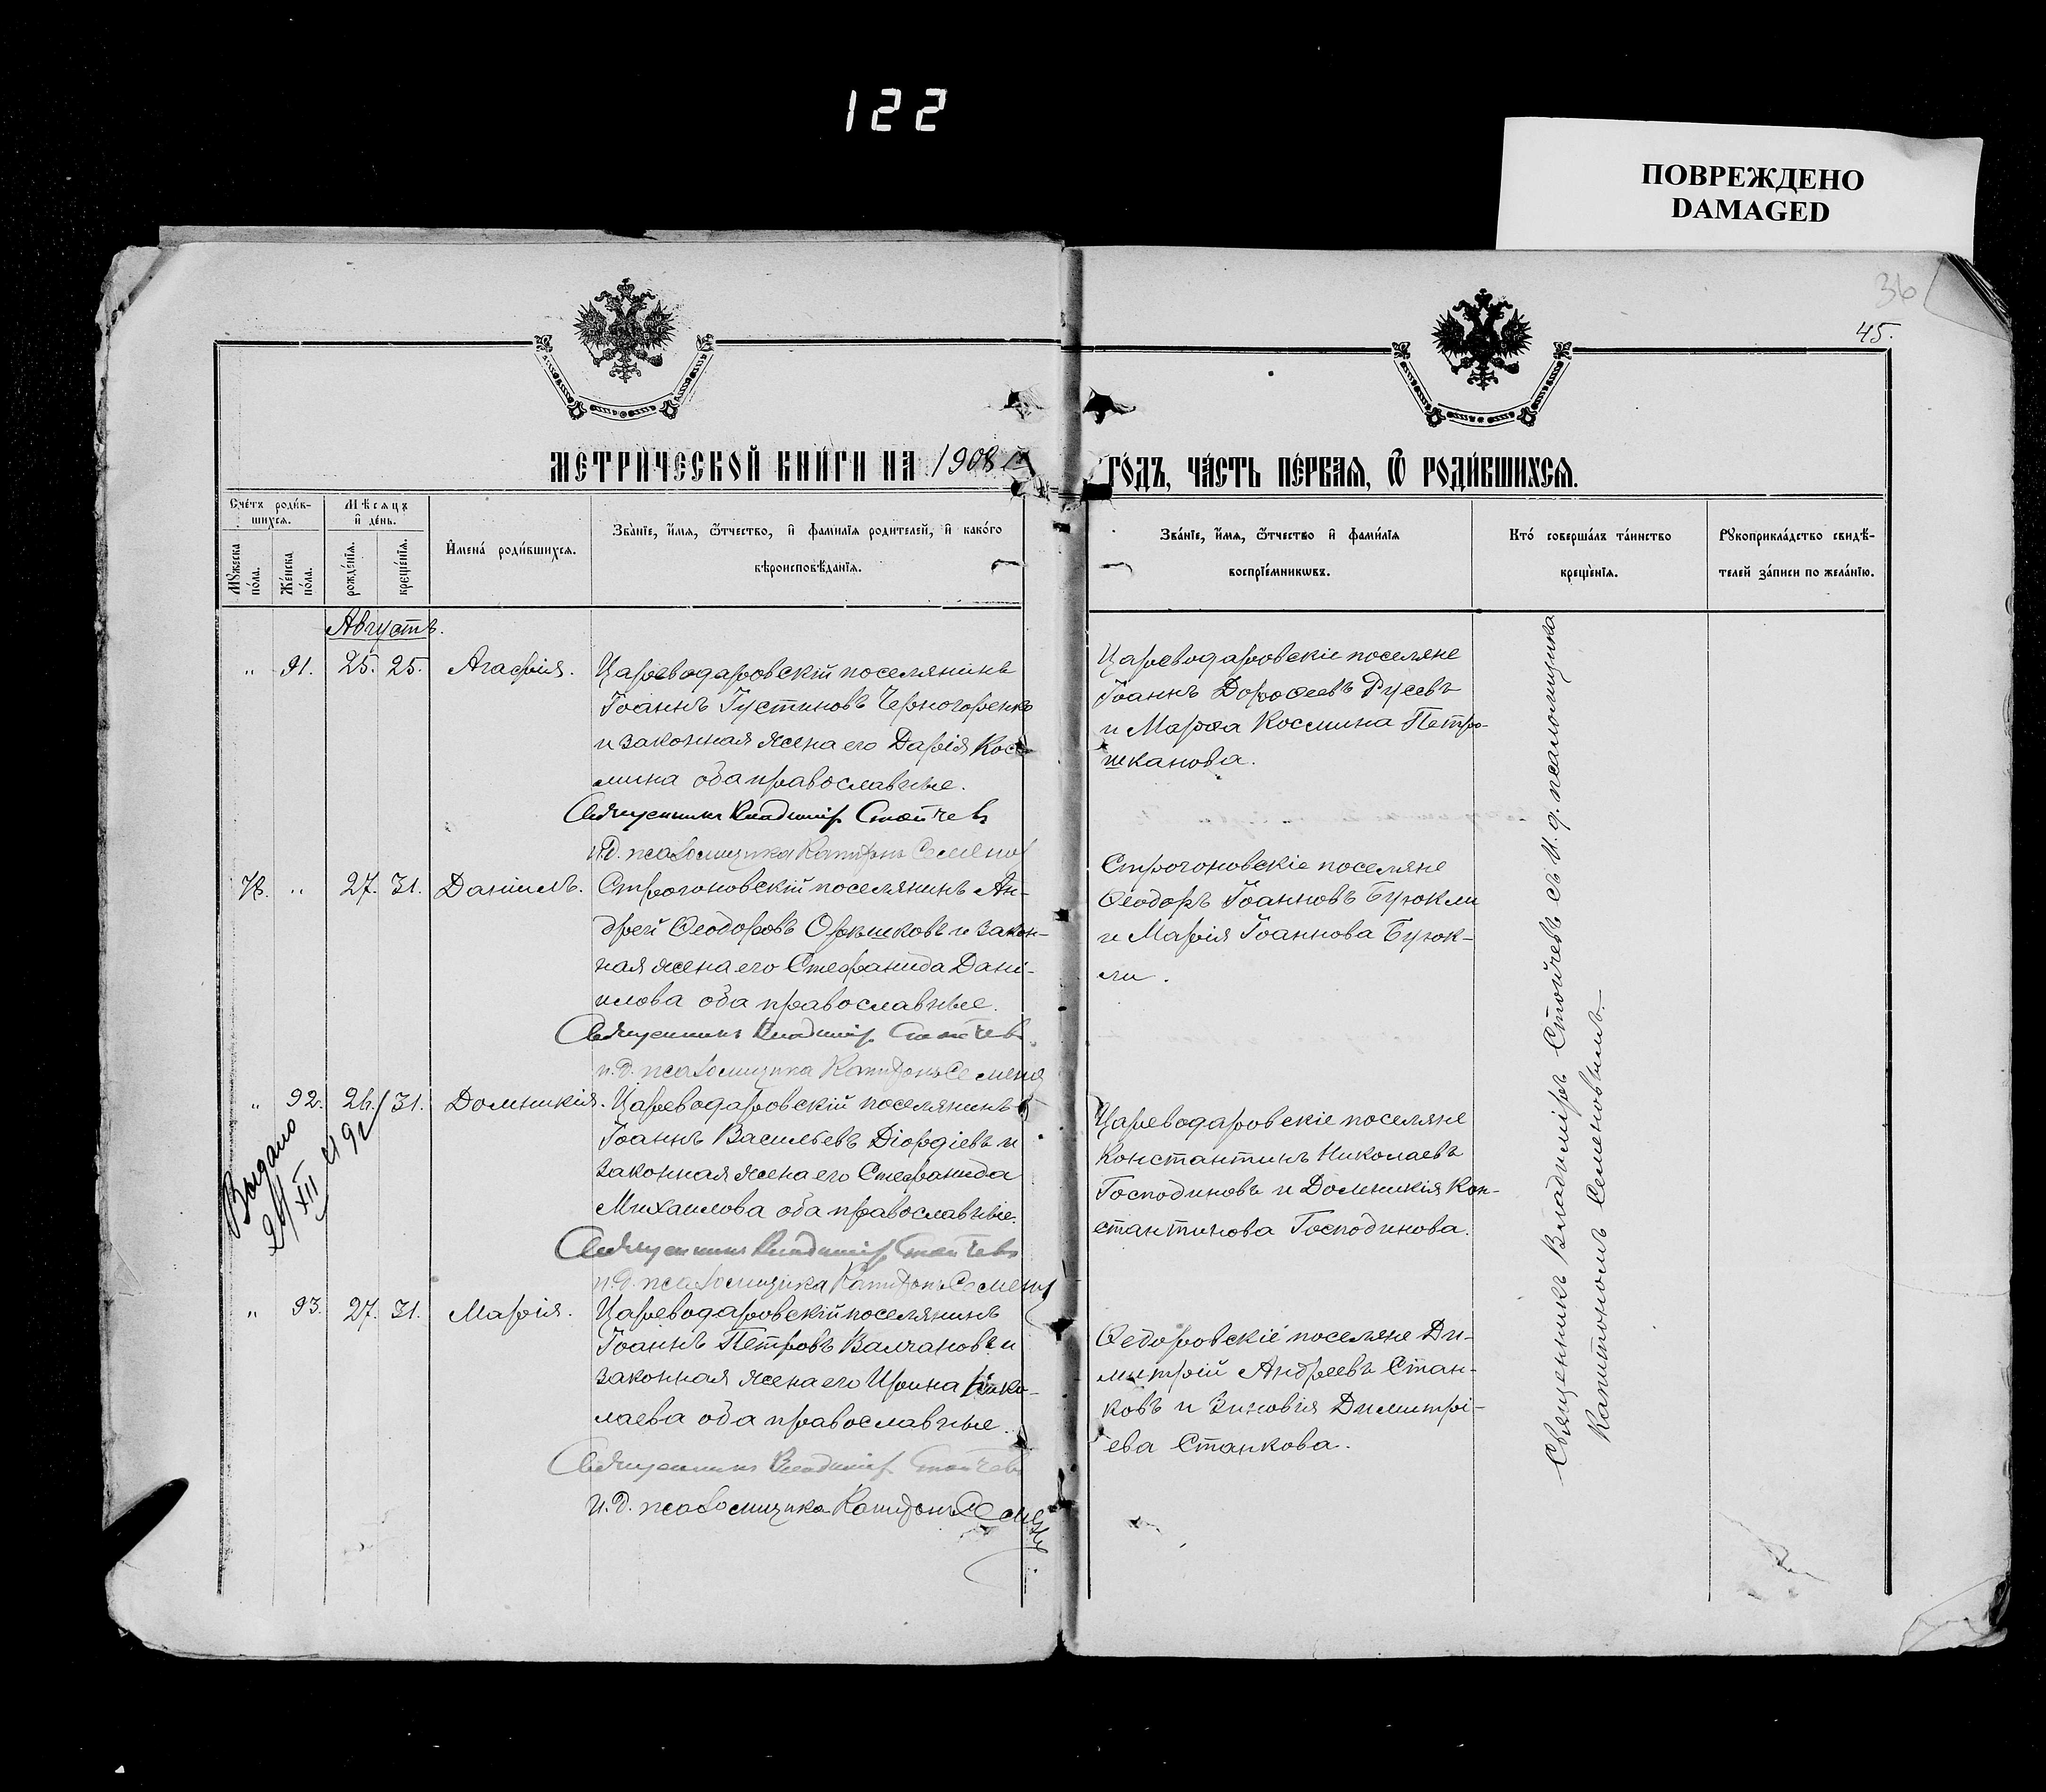 122
ПОВРЕЖДЕНО
DAMAGED
36
45.
МЕТРИЧЕСКОЙ КНИГИ НА 1908
ГОДЪ, ЧАСТЬ ПЕРВАЯ, Ѿ РОДИВШИХСЯ.
Счетъ родив-
шихся.
Мѣсяцъ
и день.
Мужеска
пола.
Женска
пола.
рожденія.
крещенія.
Имена родившихся.
Званіе, имя, ѿчество, и фамилія родителей, и какого
вѣроисповѣданія.
Званіе, имя, ѿчество и фамилія
воспріемниковъ.
Кто совершалъ таинство
крещенія.
Рукоприкладство свидѣ-
телей записи по желанію.
Августъ.
" 91. 25. 25. Агафія.
Цареводаровскій поселянинъ
Іоаннъ Іустиновъ Черногоренко
и законная жена его Дарія Кос-
мина оба православные.
Священникъ Владиміръ Стойчевъ
и.д. псаломщика Капитонъ Семенов
Цареводаровскіе поселяне
Іоаннъ Дороѳеевъ Русевъ
и Марѳа Космина Петро-
шканова.
78. " 27. 31. Даніилъ.
Строгоновскій поселянинъ Ан-
дрей Ѳеодоровъ Орѣшковъ и закон-
ная жена его Стефанида Дані-
илова оба православные.
Священникъ Владиміръ Стойчевъ
и.д. псаломщика Капитонъ Семено
Строгоновскіе поселяне
Ѳеодоръ Іоанновъ Буюкли
и Марія Іоаннова Буюк-
ли.
" 92. 26. 31. Домникія.
Цареводаровскій поселянинъ
Іоаннъ Васильевъ Діордіевъ и
законная жена его Стефанида
Михаилова оба православные.
Священникъ Владиміръ Стойчевъ
и.д. псаломщика Капитонъ Семено
Цареводаровскіе поселяне
Константинъ Николаевъ
Господиновъ и Домникія Кон-
стантинова Господинова.
Выдано
XII
" 93. 27. 31. Марія.
Цареводаровскій поселянинъ
Іоаннъ Петровъ Валчановъ и
законная жена его Ирина Нико-
лаева оба православные.
Священникъ Владиміръ Стойчевъ
и.д. псаломщика Капитонъ Семенов
Ѳедоровскіе поселяне Ди-
митрій Андреевъ Стан-
ковъ и Зиновія Димитрі-
ева Станкова.
Священникъ Владиміръ Стойчевъ съ и.д. псаломщика
Капитономъ Семеновымъ.